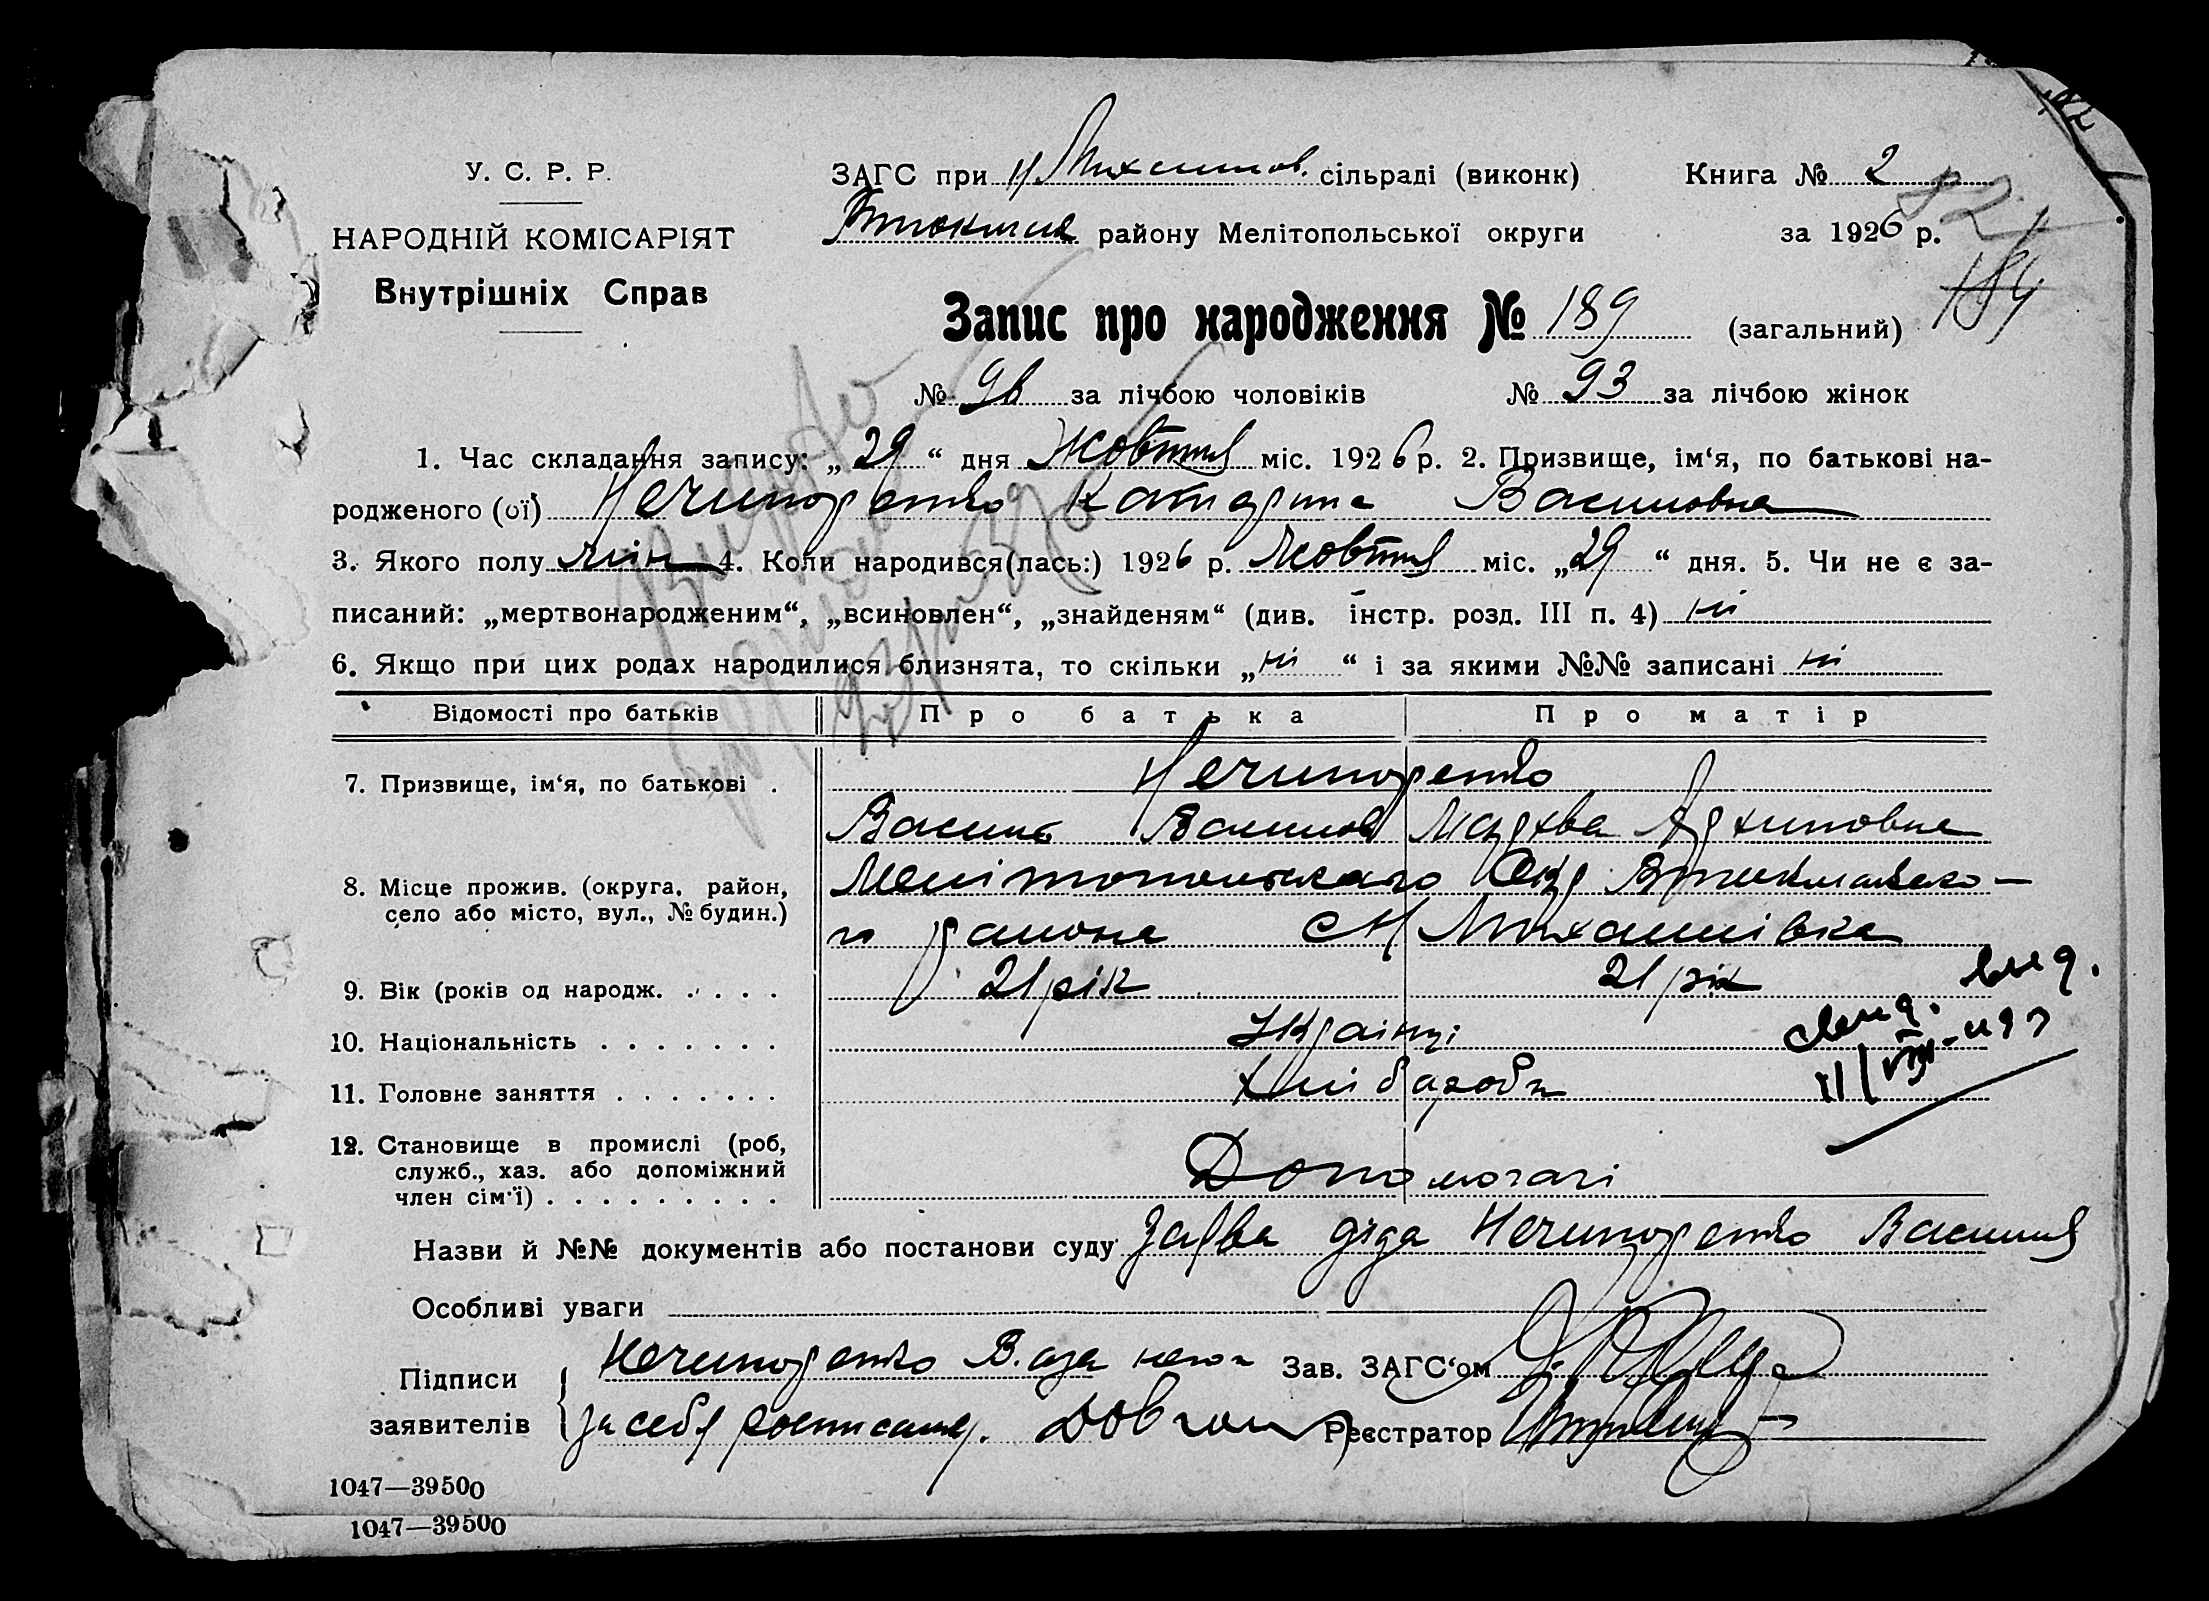 У. С. Р. Р.
НАРОДНІЙ КОМІСАРІЯТ
Внутрішніх Справ
ЗАГС при Н Михайлов. сільраді (виконк)
району Мелітопольської округи
Книга № 2
82
за 1926 р.
184
Запис про народження № 189 (загальний)
№ 96 за лічбою чоловіків № 93 за лічбою жінок
1. Час складання запису: „29“ дня Жовтня міс. 1926 р. 2. Призвище, ім‘я, по батькові на-
родженого (ої) Нечипоренко Катерина Василовна
3. Якого полу жін 4. Коли народився(лась:) 1926 р. Жовтня міс. „29“ дня. 5. Чи не є за-
писаний: „мертвонародженим“, „всиновлен“, „знайденям“ (див. інстр. розд. III п. 4) ні
6. Якщо при цих родах народилися близнята, то скільки „ні“ і за якими №№ записані ні
Видано
Відомості про батьків Про батька Про матір
7. Призвище, ім‘я, по батькові . Нечипоренко
Василь Василов Мархва Архиповна
8. Місце прожив. (округа, район, село або місто, вул., № будин.)
Мелітопольского Окр
го района с Н Михайлівка
9. Вік (років од народж. . . . . 21 рік 21 рік
10. Національність . . . . . . . Українці
11. Головне заняття . . . . . . . Хлібороби
12. Становище в промислі (роб,
служб., хаз. або допоміжний
член сім‘ї) . . . . . . . . . Допомогачі
Назви й №№ документів або постанови суду Заява діда Нечипоренко Василя
Особливі уваги
Підписи
заявителів
Нечипоренко В. а за него
за себя росписался.
Зав. ЗАГС‘ом
Реєстратор
1047—39500
1047—39500